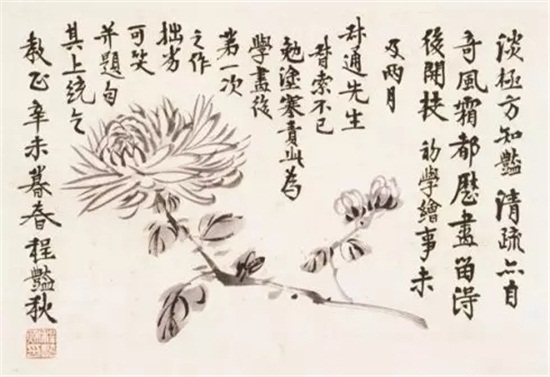 淡極方知豔清疏亦自
奇風霜都歷盡留得
後開枝 初學繪事未
及兩月
叔通先生
督索不已
勉塗塞責此為
學畫後
第一次
之作
拙劣
可笑
并題句
其上統乞
教正辛未暮春程豔秋